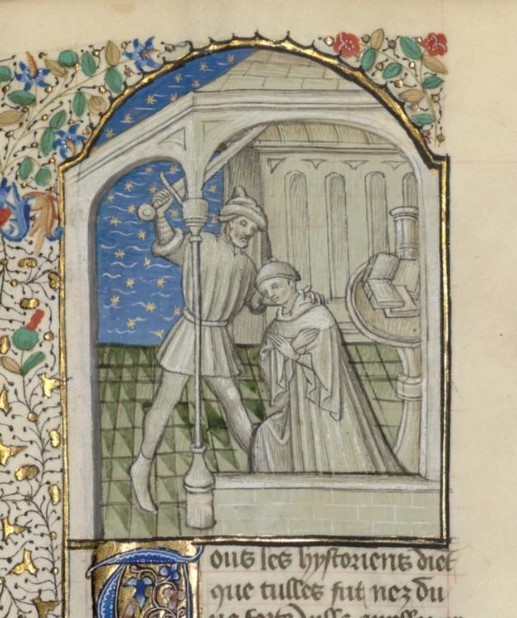 Tous les hystoriens diet
que tulles fut nez du